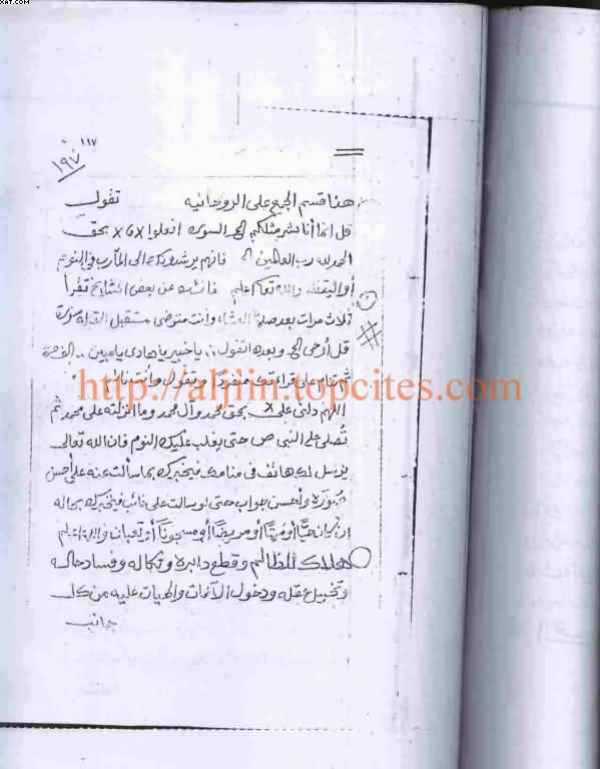 XAT.COM
١١٧
١٩٧
هذا قسم الجميع على الروحانيه تقول
قل انما أنا بشر مثلكم الخ السوره افعلوا بحق
الحمد لله رب العالمين الخ فانهم يرشدونك الى المآرب في النوم
أو اليقظه والله تعالى اعلم فائده عن بعض المشايخ تقرأ
ثلاث مرات بعد صلاة العشاء وأنت متوضى مستقبل القبله سورة
قل أوحى الخ وبعده اتقول يا خبير يا هادى يا مبين
ثم تنام على
http://aljiin.topcites.com
اللهم دلنى على بحق محمد وآل محمد وما انزلته على محمد ثم
تصلى على النبى ص حتى يغلب عليك النوم فان الله تعالى
يرسل لك هاتف فى منامك فيخبرك بما سألت عنه على أحسن
صورة وأحسن جواب حتى لو سالت على غائب فيخبرك بحاله
ان كان حيًّا أو ميتًا أو مريضًا أو مسجونًا أو تعبان والله اعلم
هلاك للظالم وقطع دابره ونكاله وفساد حاله
وتخبيل عقله ودخول الآفات والحيات عليه من كل
جانب